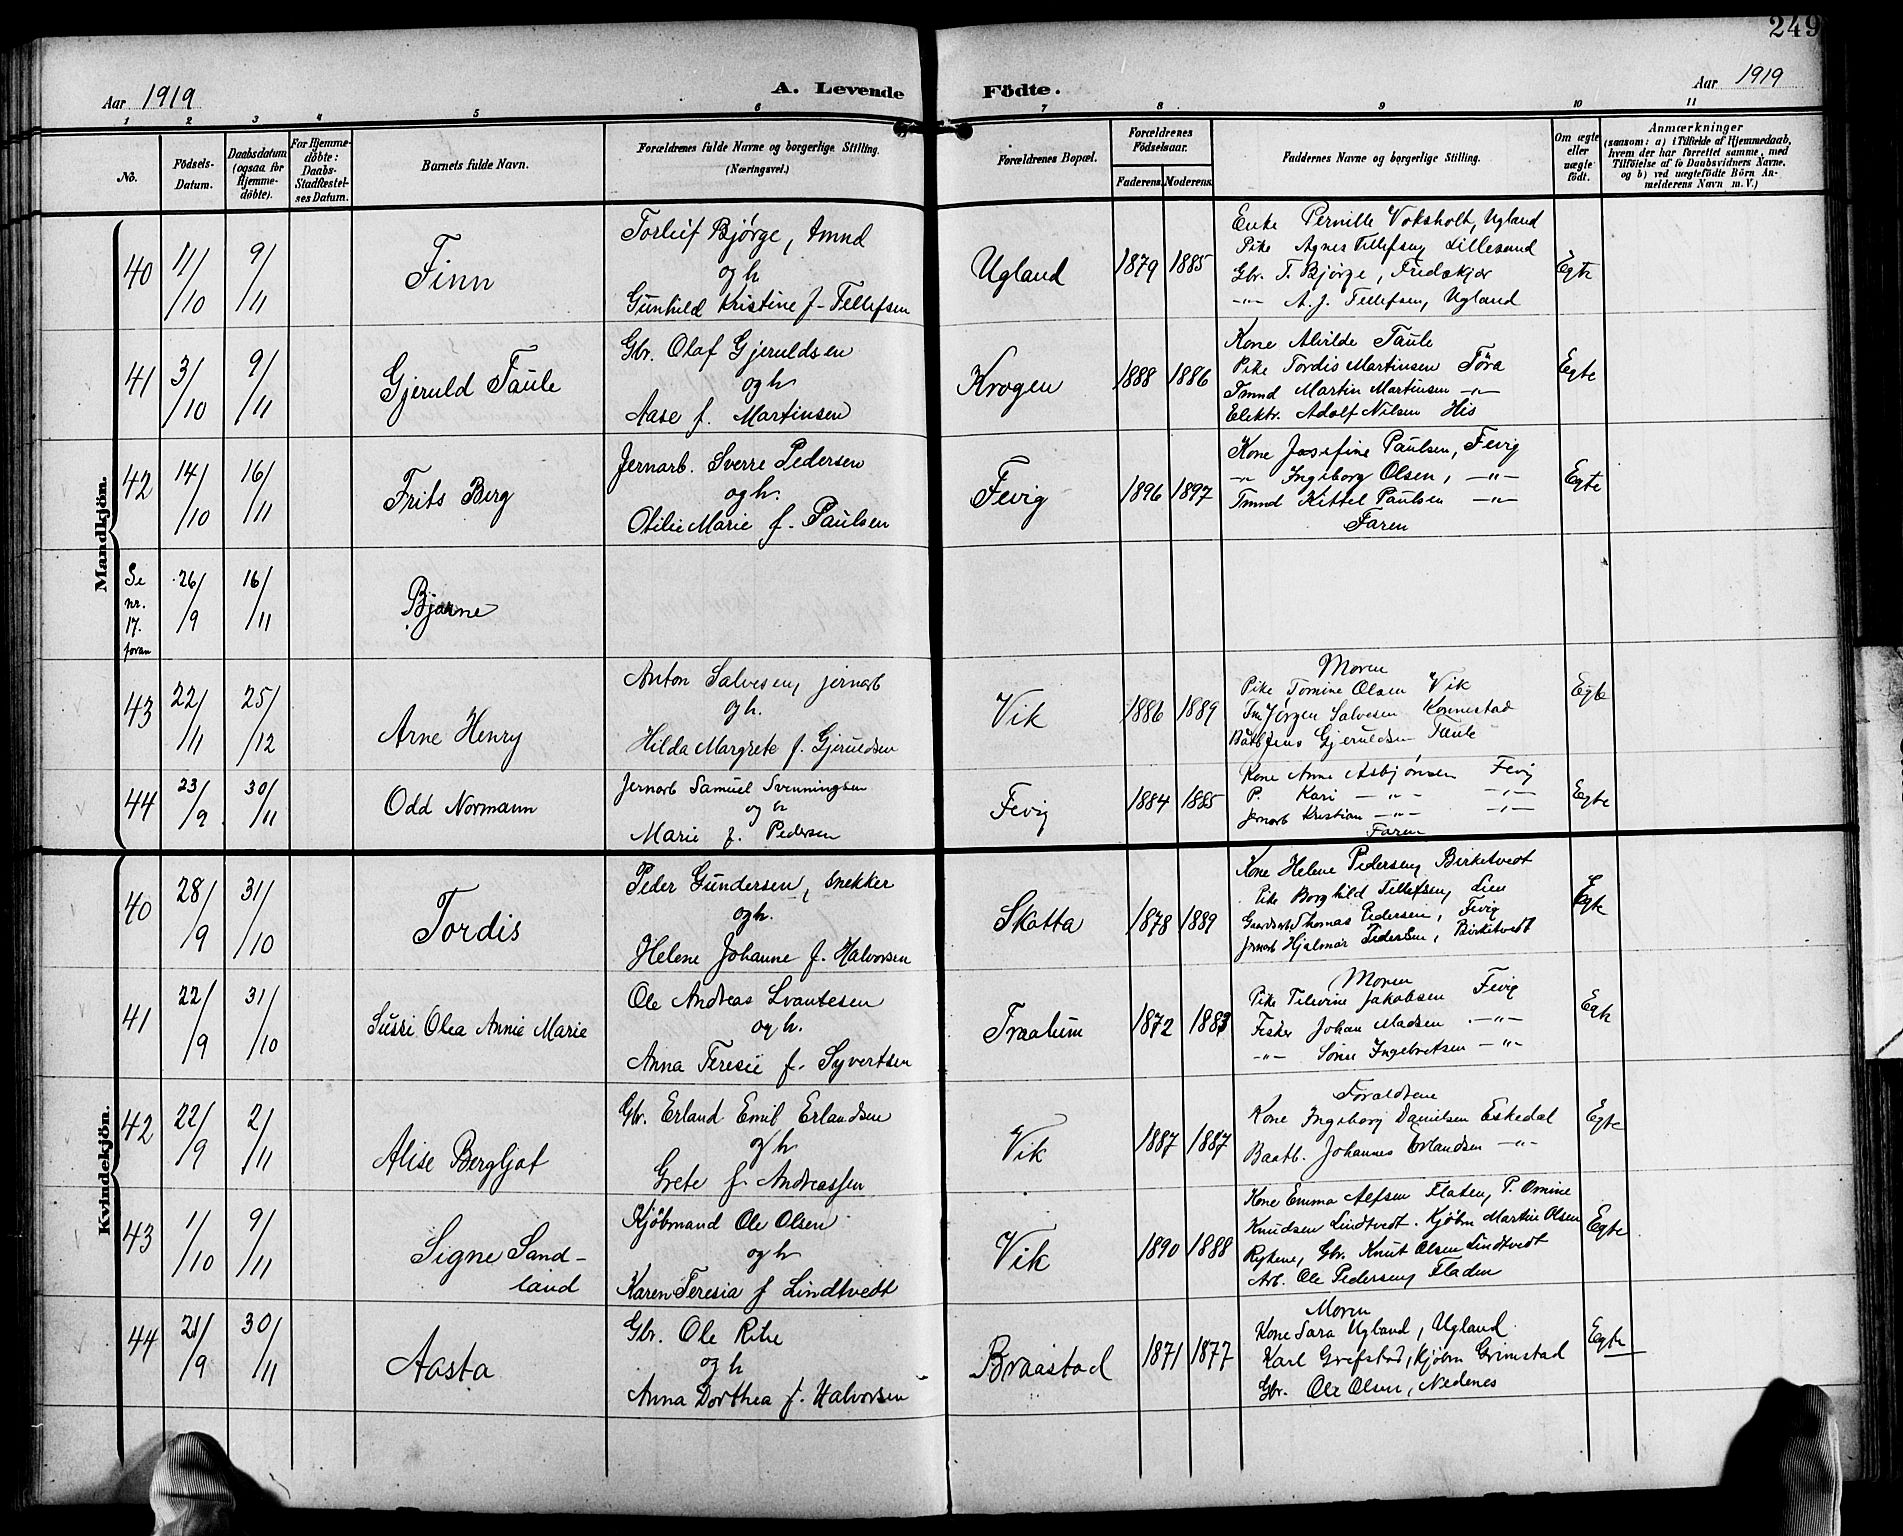 249
Aar 1919
A. Levende Födte.
Aar 1919
1 2 3 4 5 6 7 8 9 10 11
No.
Födsels-Datum.
Daabsdatum (ogsaa for Hjemme-döbte).
For Hjemme-döbte: Daabs-Stadfæstel-ses Datum.
Barnets fulde Navn.
Forældrenes fulde Navne og borgerlige Stilling. (Næringsvei.)
Forældrenes Bopæl.
Forældrenes Födselsaar.
Faderens. Moderens.
Faddernes Navne og borgerlige Stilling.
Om ægte eller uægte født.
Anmærkninger
(saasom: a) i Tilfælde af Hjemmedaab, hvem der har forrettet samme, med Tilföielse af to Daabsvidners Navne, og b) ved uægtefödte Börn An-melderens Navn m. V.)
Mandkjön.
40 11/10 9/11 Finn
Torleif Bjørge, tmnd
og h
Gunhild Kristine f. Tellefsen
Ugland 1879 1885
Enke Pernille Voksholt, Ugland
Pike Agnes Tellefsen Lillesand
Gbr. T. Bjørge, Fredskjær
-"- A. J. Tellefsen, Ugland
Egte
41 3/10 9/11 Gjeruld Taule
Gbr. Olaf Gjeruldsen
og h
Aase f. Martinsen
Krogen 1888 1886
Kone Alvilde Taule
Pike Tordis Martinsen Föra
Tmnd Martin Martinsen -"-
Elektr. Adolf Nilsen His
Egte
42 14/10 16/11 Frits Berg
Jernarb. Sverre Pedersen
og h.
Otilie Marie f. Paulsen
Fevig 1896 1897
Kone Josefine Paulsen, Fevig
-"- Ingeborg Olsen, -"-
Tmnd Kittel Paulsen -"-
Faren
Egte
Se nr. 17. foran 26/9 16/11 Bjarne
43 22/11 25/12 Arne Henry
Anton Salvesen, jernarb
og h.
Hilda Margrete f. Gjeruldsen
Vik 1886 1889
Moren
Pike Tomine Olsen Vik
Tm Jørgen Salvesen Konnestad
Båtb Jens Gjeruldsen Taule
Egte
44 23/9 30/11 Odd Normann
Jernarb Samuel Svenningsen
og h
Marie f. Pedersen
Fevig 1884 1885
Kone Anne Asbjönsen Fevig
P. Kari -"- -"-
Jernarb Kristian -"- -"-
Faren
Egte
Kvindekjön.
40 28/9 31/10 Tordis
Peder Gundersen, snekker
og h.
Helene Johanne f. Halvorsen
Skatta 1878 1889
Kone Helene Pedersen, Birketvedt
Pike Borghild Tellefsen, Lien
Thomas Pedersen, Fevig
Jernarb Hjalmar Pedersen, Birketvedt
Egte
41 22/9 31/10 Sussi Olea Annie Marie
Ole Andreas Svantesen
og h.
Anna Teresie f. Syvertsen
Traalum 1872 1883
Moren
Pike Tilevine Jakobsen Fevig
Fisker Johan Madsen -"-
-"- Sönne Ingebretsen -"-
Egte
42 22/9 2/11 Alise Bergljot
Gbr. Erland Emil Erlandsen
og h
Grete f Andreassen
Vik 1887 1887
Foraldrene
Kone Ingeborg Danielsen Eskedal
Baatb. Johannes Erlandsen -"-
Egte
43 1/10 9/11 Signe Sand-
land
Kjøbmand Ole Olsen
og h
Karen Teresia f Lindtvedt
Vik 1890 1888
Kone Emma Alfsen Flaten, P. Omine
Knudsen Lindtvedt. Kjøbm Martin Olsen
Rykene, Gbr. Knut Olsen Lindtvedt
Arb. Ole Pedersen, Fladen
Egte
44 21/9 30/11 Aasta
Gbr. Ole Ribe
og h
Anna Dorthea f. Halvorsen
Braastad 1871 1877
Moren
Kone Sara Ugland, Ugland.
Karl Grefstad, Kjøbm Grimstad
Gbr. Ole Olsen, Nedenes
Egte